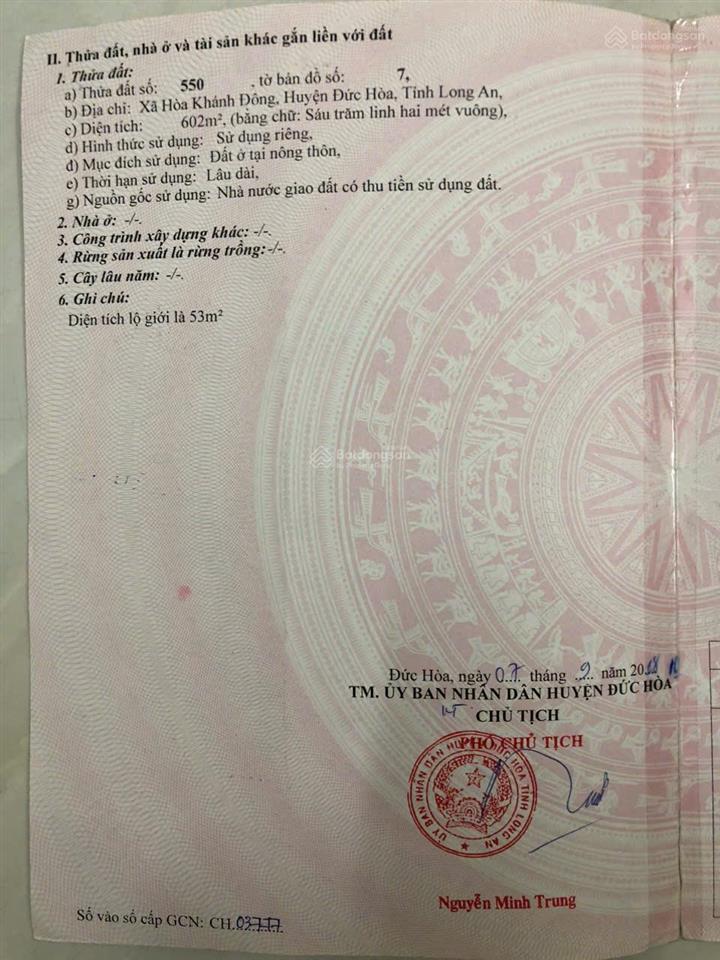 II. Thửa đất, nhà ở và tài sản khác gắn liền với đất
1. Thửa đất:
a) Thửa đất số: 550 , tờ bản đồ số: 7,
b) Địa chỉ: Xã Hòa Khánh Đông, Huyện Đức Hòa, Tỉnh Long An,
c) Diện tích: 602m², (bằng chữ: Sáu trăm linh hai mét vuông),
d) Hình thức sử dụng: Sử dụng riêng,
đ) Mục đích sử dụng: Đất ở tại nông thôn,
e) Thời hạn sử dụng: Lâu dài,
g) Nguồn gốc sử dụng: Nhà nước giao đất có thu tiền sử dụng đất.
2. Nhà ở: -/-.
3. Công trình xây dựng khác: -/-.
4. Rừng sản xuất là rừng trồng:-/-.
5. Cây lâu năm: -/-.
6. Ghi chú:
Diện tích lộ giới là 53m²
Batdongsan
Batdongsan
Đức Hòa, ngày 07 tháng 9 năm 2018
TM. ỦY BAN NHÂN DÂN HUYỆN ĐỨC HÒA
KT CHỦ TỊCH
PHÓ CHỦ TỊCH
ỦY BAN NHÂN DÂN HUYỆN ĐỨC HÒA TỈNH LONG AN
Nguyễn Minh Trung
Số vào sổ cấp GCN: CH.03777